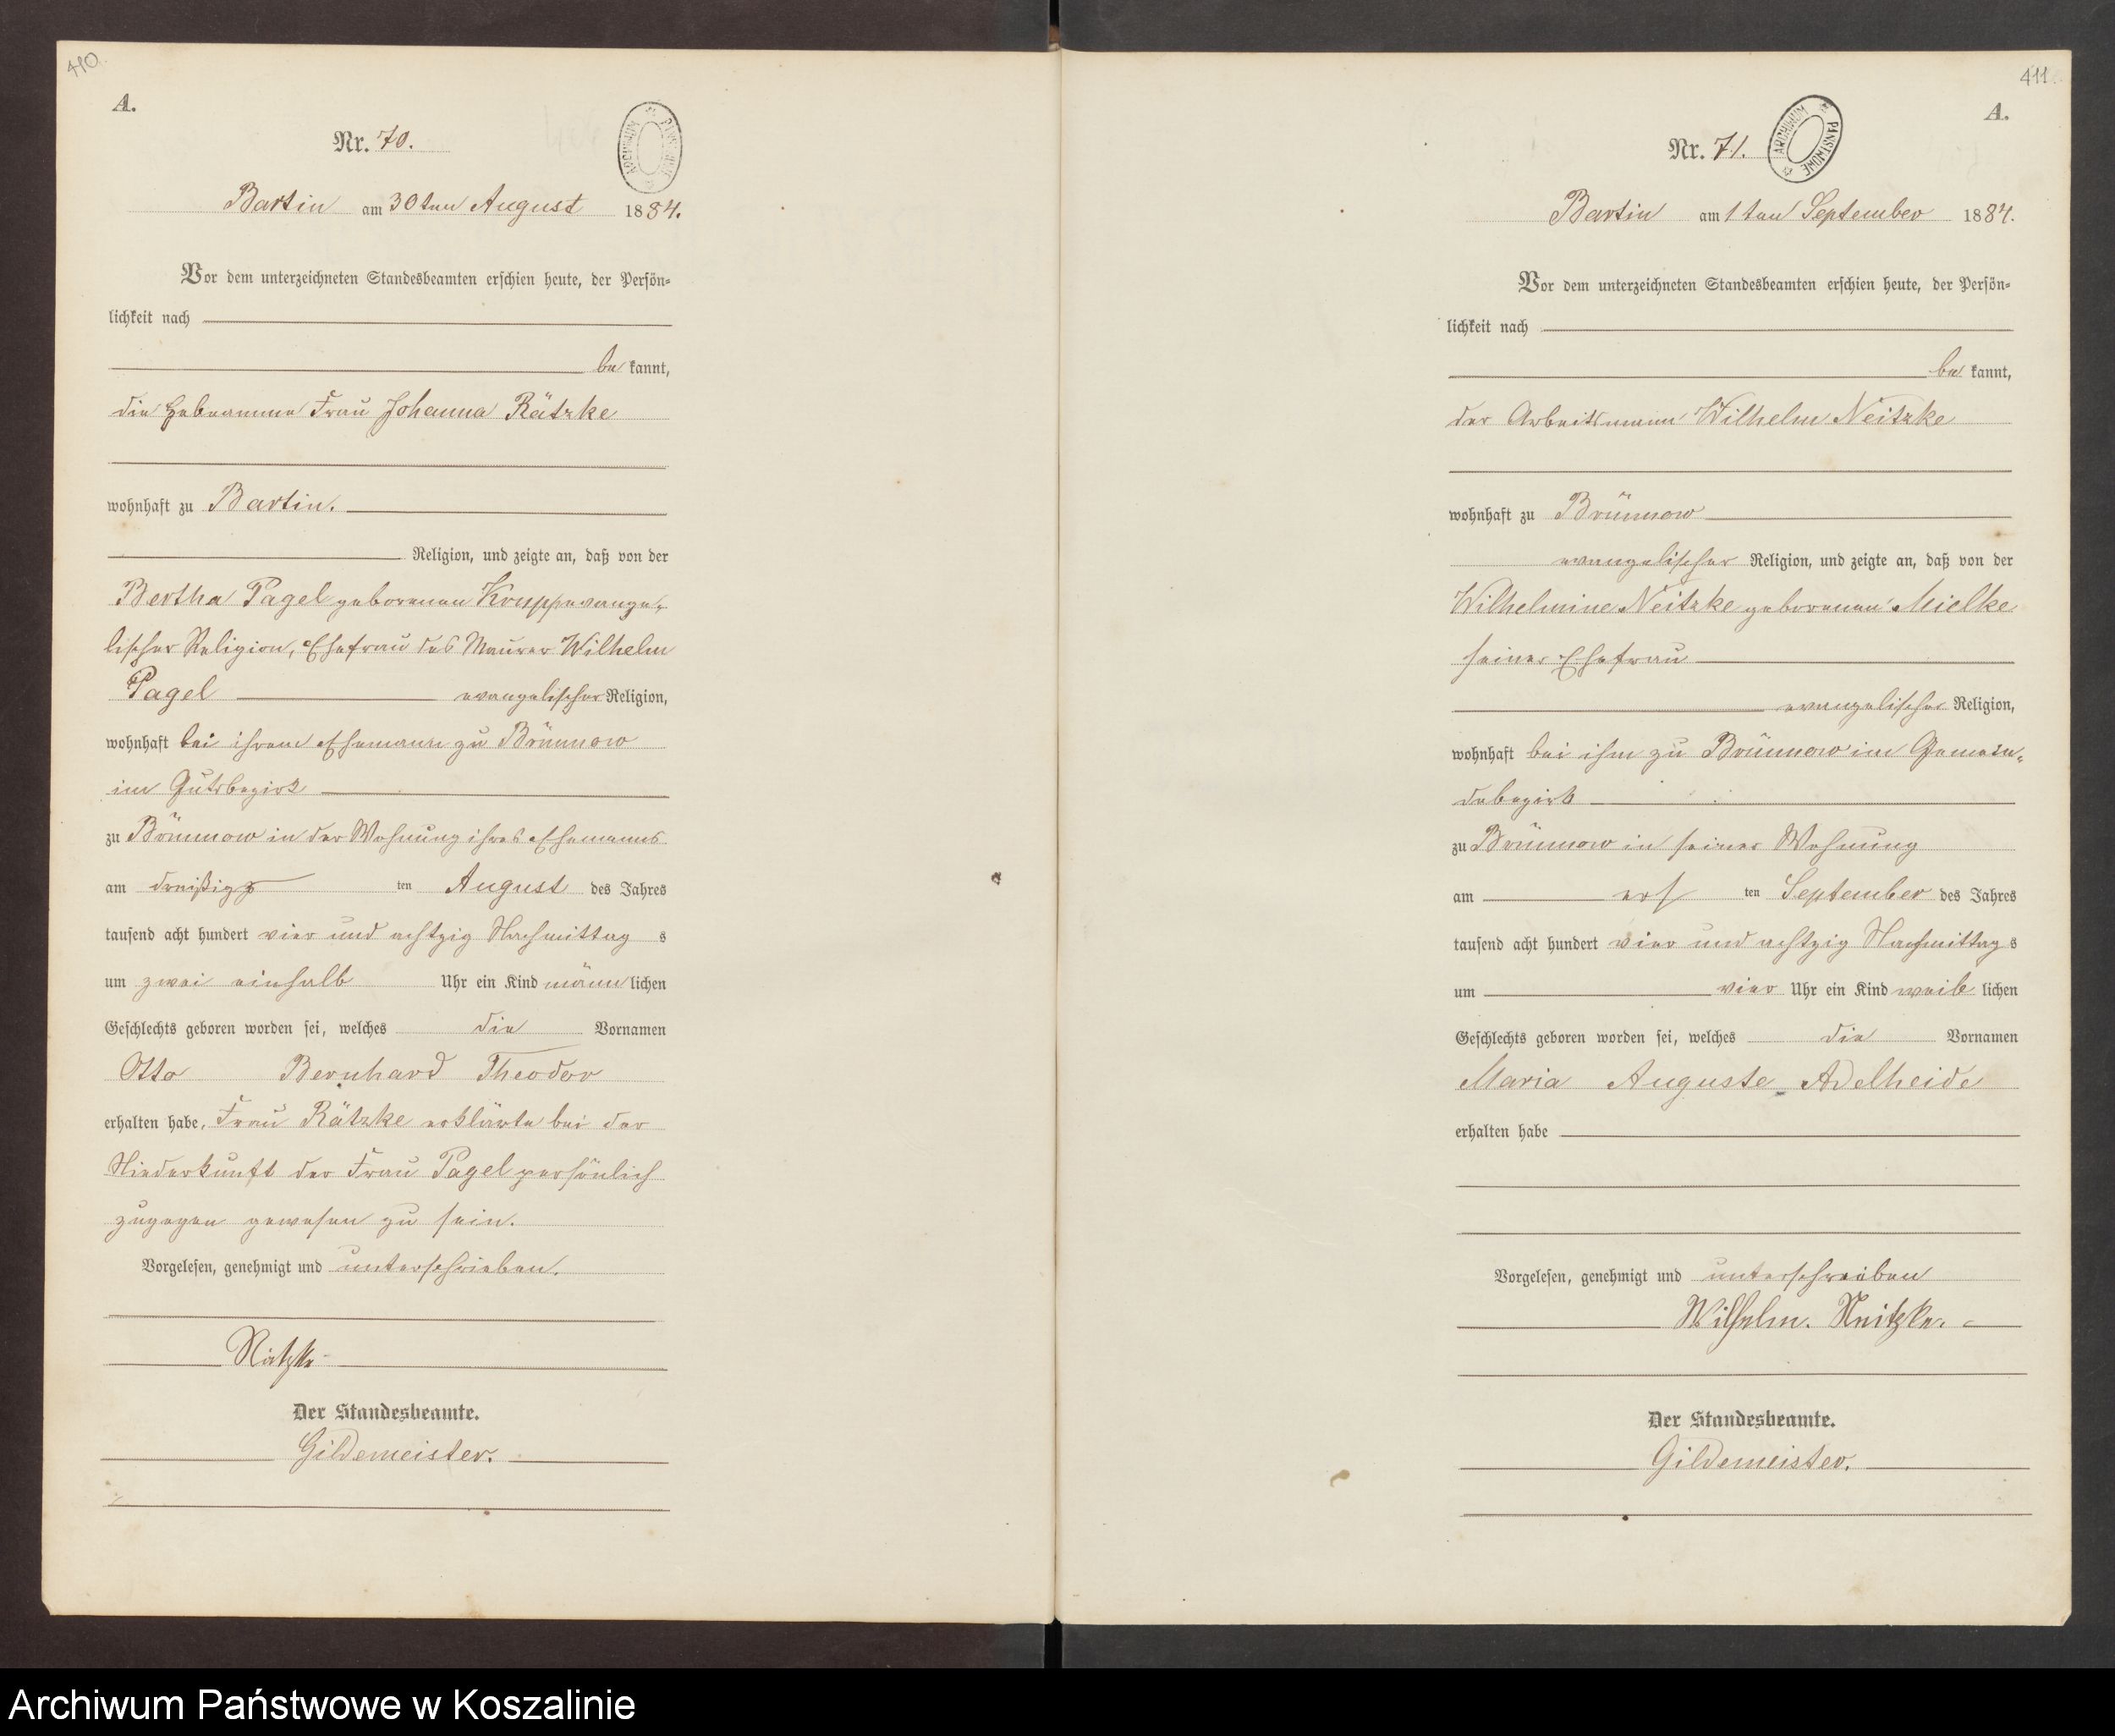 410.
A.
Nr. 70.
ARCHIWUM PAŃSTWOWE
Bartin am 30ten August 1884.
Vor dem unterzeichneten Standesbeamten erschien heute, der Persön-
lichkeit nach
be kannt,
die Hebeamme Frau Johanna Rätzke
wohnhaft zu Bartin.
Religion, und zeigte an, daß von der
Bertha Pagel geborenen Krupp evange-
lischer Religion, Ehefrau des Maurer Wilhelm
Pagel evangelischer Religion,
wohnhaft bei ihrem Ehemann zu Brünnow
im Gutsbezirk
zu Brünnow in der Wohnung ihres Ehemanns
am dreißigs ten August des Jahres
tausend acht hundert vier und achtzig Nachmittag s
um zwei einhalb Uhr ein Kind männ lichen
Geschlechts geboren worden sei, welches die Vornamen
Otto Bernhard Theodor
erhalten habe. Frau Rätzke erklärte bei der
Niederkunft der Frau Pagel persönlich
zugegen gewesen zu sein.
Vorgelesen, genehmigt und unterschrieben.
Rätzke
Der Standesbeamte.
Gildemeister.
411.
A.
Nr. 71.
ARCHIWUM PAŃSTWOWE
Bartin am 1ten September 1884.
Vor dem unterzeichneten Standesbeamten erschien heute, der Persön-
lichkeit nach
be kannt,
der Arbeitsmann Wilhelm Neitzke
wohnhaft zu Brünnow
evangelischer Religion, und zeigte an, daß von der
Wilhelmine Neitzke geborenen Mielke
seiner Ehefrau
evangelischer Religion,
wohnhaft bei ihm zu Brünnow im Gemein-
debezirk
zu Brünnow in seiner Wohnung
am ers ten September des Jahres
tausend acht hundert vier und achtzig Nachmittag s
um vier Uhr ein Kind weib lichen
Geschlechts geboren worden sei, welches die Vornamen
Maria Auguste Adelheide
erhalten habe
Vorgelesen, genehmigt und unterschrieben
Wilhelm. Neitzke.
Der Standesbeamte.
Gildemeister.
Archiwum Państwowe w Koszalinie